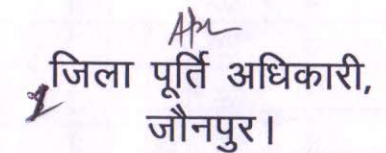 जिला पूर्ति अधिकारी,
जौनपुर।